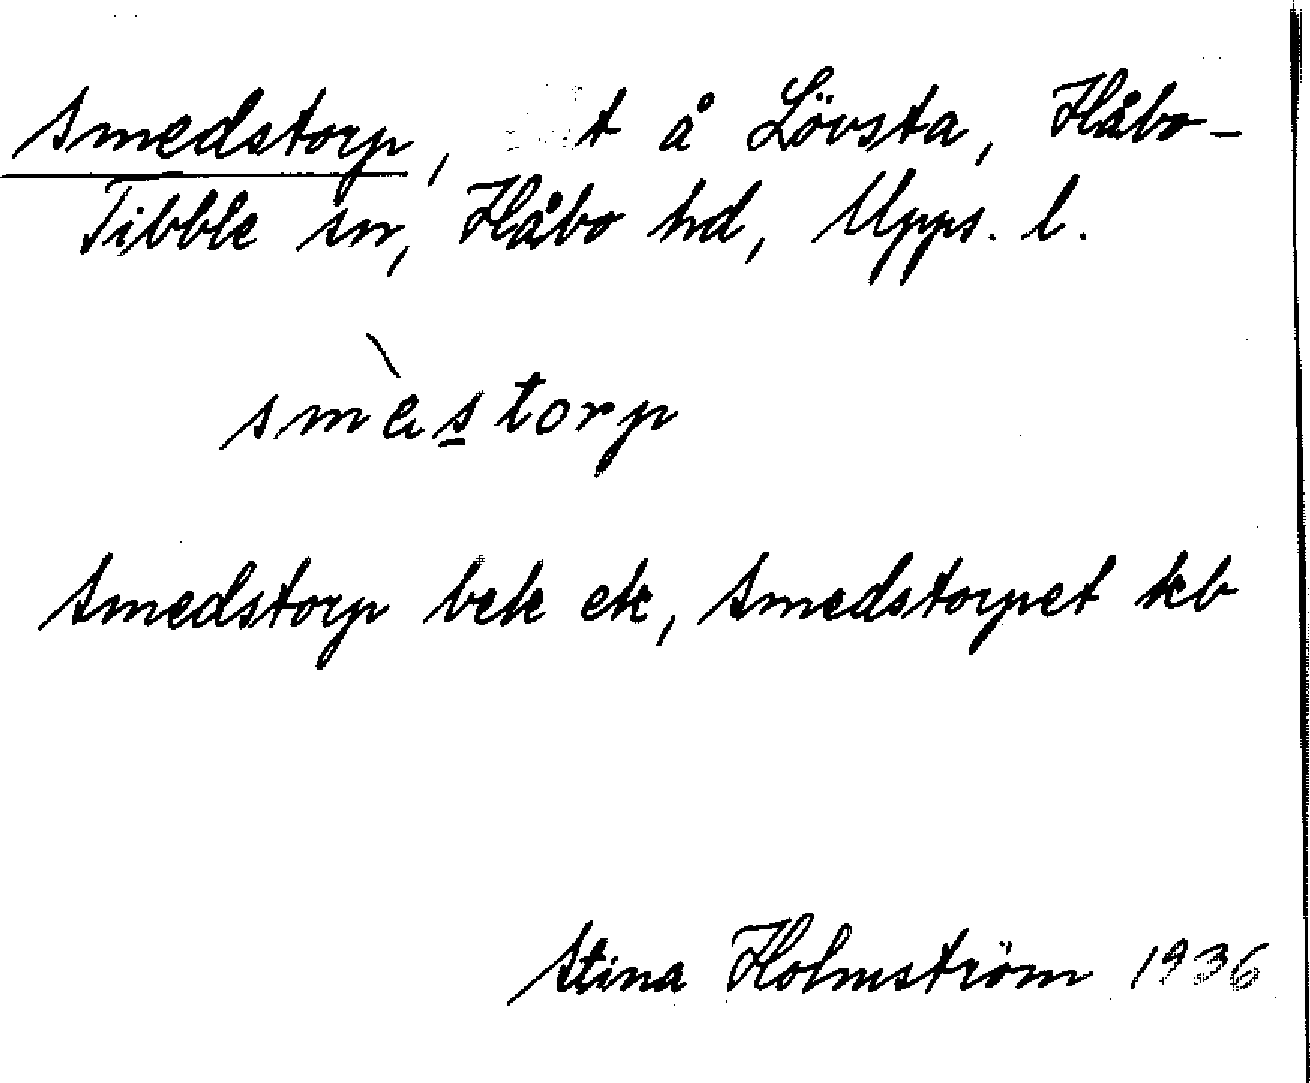 Smedstorp, t å Lövsta, Håbo-
Tibble sn, Håbo hd, Upps. l.
smèstorp
Smedstorp bek ek, Smedstorpet kb
Stina Holmström 1936